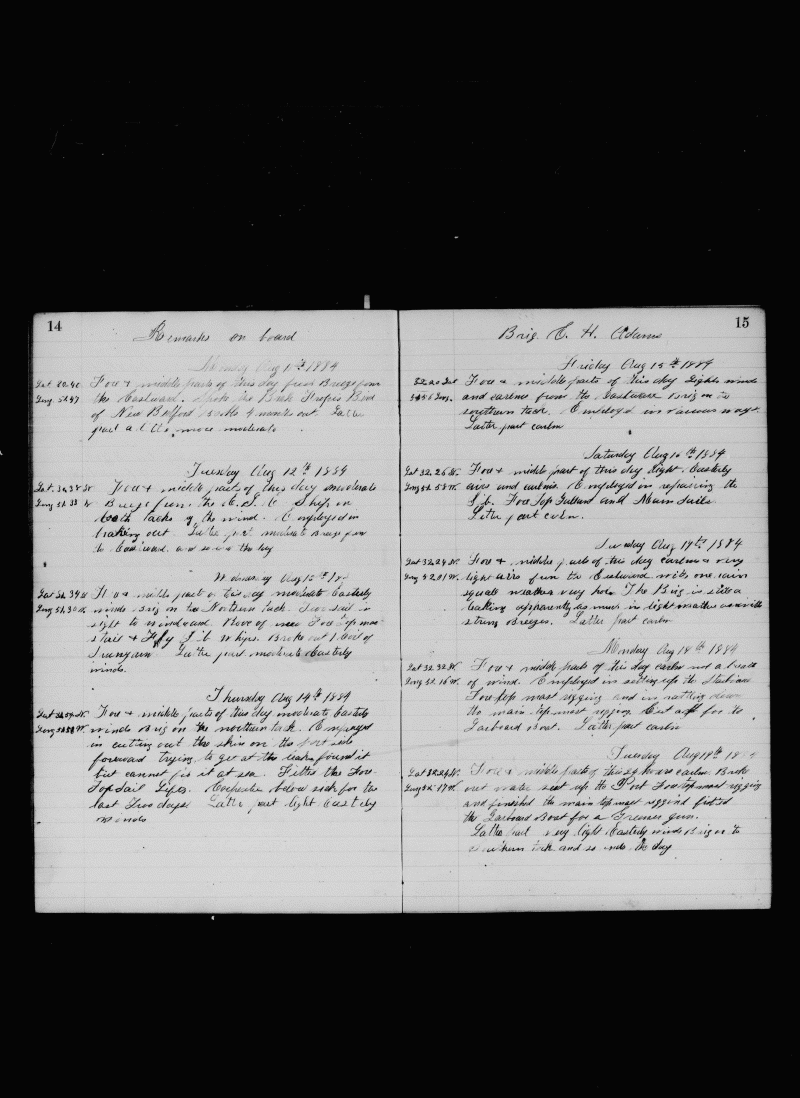 14
Remarks on board
Monday Aug 11th 1884
Fore & middle parts of this day fresh Breeze from
Long 51.47 the Eastward. Spoke the Bark
of New Bedford 4 months out. Latter
part a little more moderate
Tuesday Aug 12th 1884
Fore & middle parts of this day moderate
Breeze from the E. S. E. Ship on
both tacks of the wind. Employed in
breaking out. Latter part moderate Breeze from
the Eastward. and so ends the day
Wednesday Aug 13th
Fore & middle part of this day moderate Easterly
winds Brig on the Northern tack. One sail in
sight to windward. Rove of new Fore Top mas
stail & Fly Jib whips. Broke out 1 Coil of
Latter part moderate Easterly
winds.
Thursday Aug 14th 1884
Fore & middle parts of this day moderate Easterly
winds Brig on the northern tack. Employed
in cutting out the skin on the port side
forward trying to get at the leak found it
but cannot fix it at sea. Fitted the Fore
Top Sail Lifts. Carpenter below sick for the
last Two days. Latter part light Easterly
winds
15
Brig E. H. Adams
Friday Aug 15th 1884
Fore & middle parts of this day Lights winds
and carlms from the Eastward Brig on the
southern tack. Employed in various ways.
Latter part carlm
Saturday Aug 16th 1884
Lat 32.26 N. Fore & middle part of this day light Easterly
Long 51.58 W. airs and carlms. Employed in repairing the
Jib. Fore Top Gallant and Main Sails
Latter part carlm.
Sunday Aug 17th 1884
Lat 32.24 N. Fore & middle parts of this day carlm & very
Long 52.01 W. light airs from the Eastward with one rain
squall weather very hot. The Brig is still a
leaking apparently as much in light weather as with
strong Breezes. Latter part carlm
Monday Aug 18th 1884
Lat 32.32 N. Fore & middle parts of this day carlm not a breath
Long 52.16 W. of wind. Employed in setting up the Starboard
Fore top mast rigging and in rattling down
the main top mast rigging. Cut a for the
Larboard Boat. Latter part carlm
Tuesday Aug 19th 1884
Lat 32.24 N. Fore & middle parts of this 24 hours carlm. Broke
Long 52.17 W. out water set up the Port Fore top mast rigging
and finished the main top mast rigging fitted
the Larboard Boat for a Greener gun.
Latter part very light Easterly winds Brig on the
southern tack and so ends the day